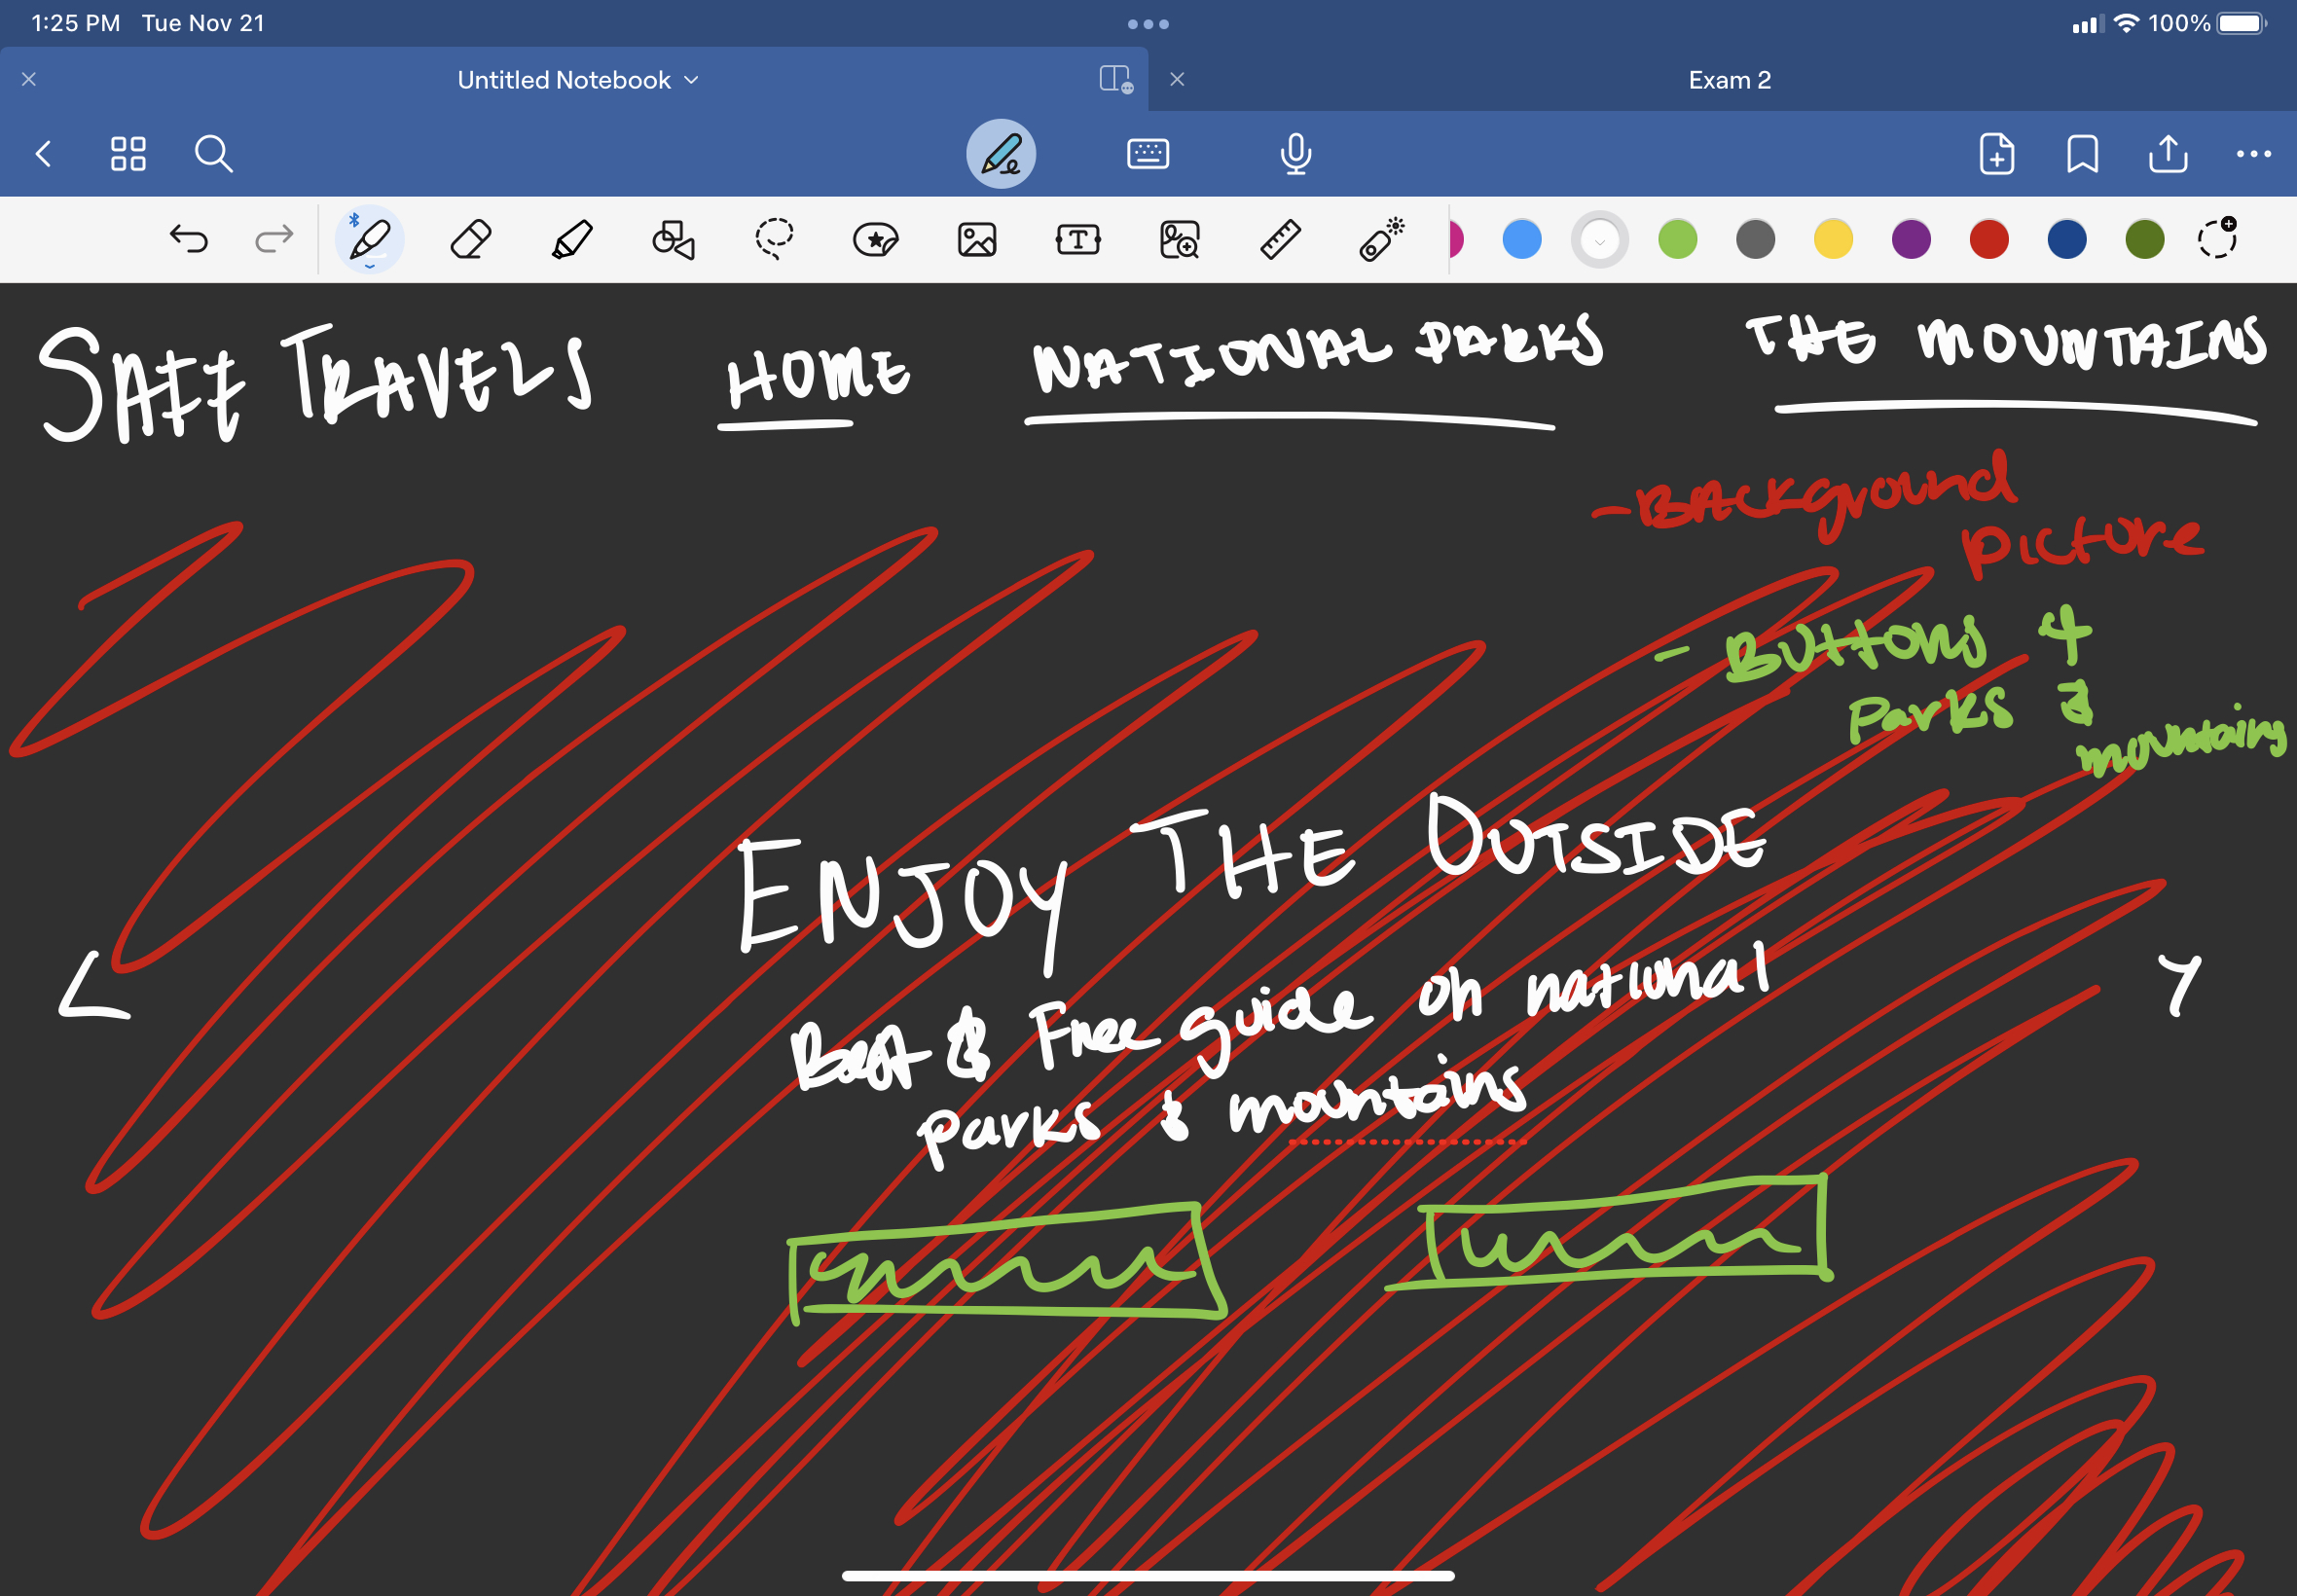 1:25 PM Tue Nov 21
100%
Untitled Notebook
Exam 2
SAFE TRAVELS
HOME
NATIONAL PARKS
THE MOUNTAINS
- BACKground
picture
- Buttons 4
parks &
mountains
ENJOY THE OUTSIDE
Best & Free guide on national
parks & mountains